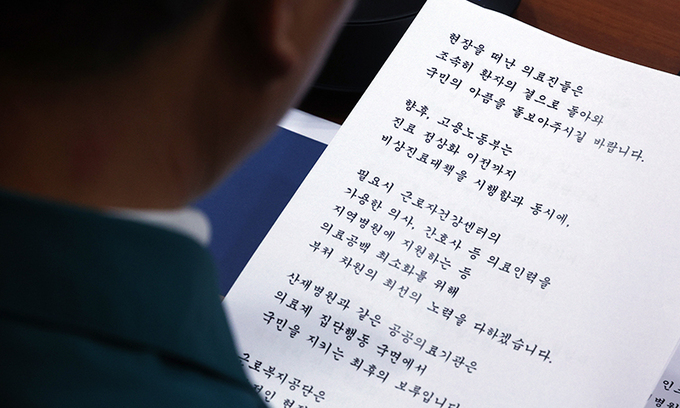 현장을 떠난 의료진들은
조속히 환자의 곁으로 돌아와
국민의 아픔을 돌보아주시길 바랍니다.
향후, 고용노동부는
진료 정상화 이전까지
비상진료대책을 시행함과 동시에,
필요시 근로자건강센터의
가용한 의사, 간호사 등 의료인력을
지역병원에 지원하는 등
의료공백 최소화를 위해
부처 차원의 최선의 노력을 다하겠습니다.
산재병원과 같은 공공의료기관은
의료계 집단행동 국면에서
국민을 지키는 최후의 보루입니다
근로복지공단은